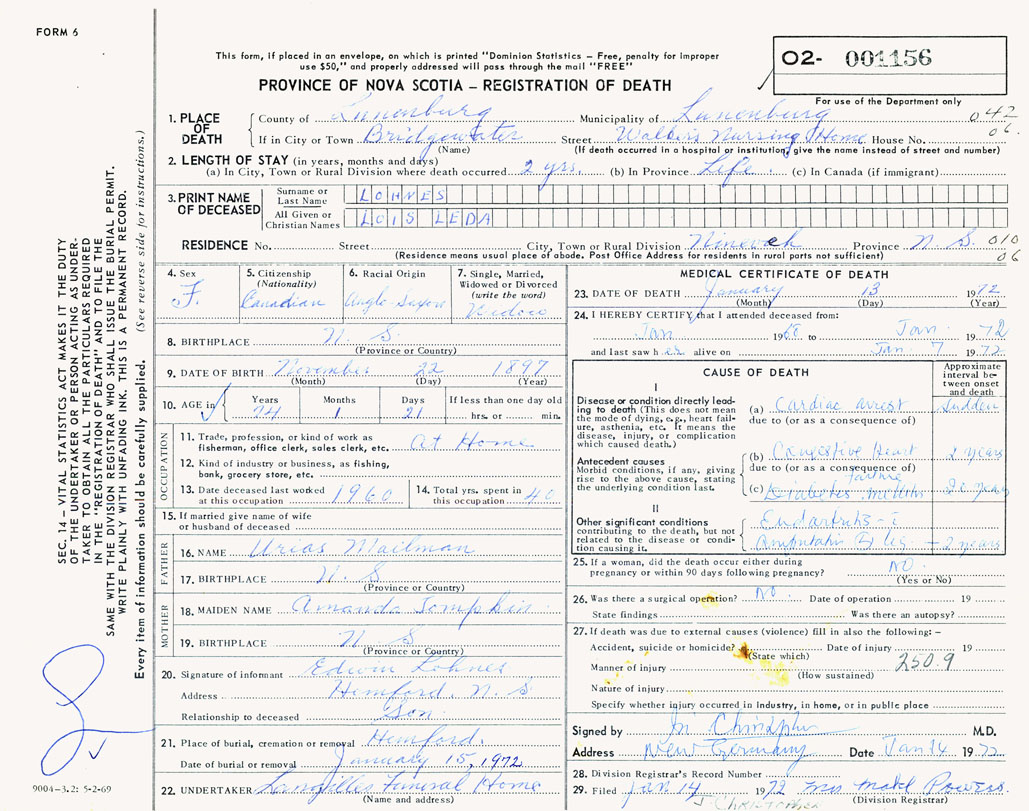 FORM 6
This form, if placed in an envelope, on which is printed "Dominion Statistics – Free, penalty for improper
use $50," and properly addressed will pass through the mail "FREE"
PROVINCE OF NOVA SCOTIA – REGISTRATION OF DEATH
O2- 001156
For use of the Department only
1. PLACE OF DEATH
County of Lunenburg Municipality of Lunenburg 042
If in City or Town Bridgewater Street Walker's Nursing Home House No. 06
(Name) (If death occurred in a hospital or institution, give the name instead of street and number)
2. LENGTH OF STAY (in years, months and days)
(a) In City, Town or Rural Division where death occurred 2 yrs. (b) In Province Life. (c) In Canada (if immigrant)
3. PRINT NAME OF DECEASED
Surname or Last Name LOHNES
All Given or Christian Names LOIS LEDA
RESIDENCE No. Street City, Town or Rural Division Ninevah Province N. S. 010
(Residence means usual place of abode. Post Office Address for residents in rural parts not sufficient) 06
4. Sex F.
5. Citizenship (Nationality) Canadian
6. Racial Origin Anglo-Saxon
7. Single, Married, Widowed or Divorced (write the word) Widow
8. BIRTHPLACE N. S.
(Province or Country)
9. DATE OF BIRTH November 22 1897
(Month) (Day) (Year)
10. AGE in Years 74 Months 1 Days 21 If less than one day old hrs. or min.
OCCUPATION
11. Trade, profession, or kind of work as fisherman, office clerk, sales clerk, etc. At Home
12. Kind of industry or business, as fishing, bank, grocery store, etc.
13. Date deceased last worked at this occupation 1960
14. Total yrs. spent in this occupation 40
15. If married give name of wife or husband of deceased
FATHER
16. NAME Urias Mailman
17. BIRTHPLACE N. S
(Province or Country)
MOTHER
18. MAIDEN NAME Amanda
19. BIRTHPLACE N. S
(Province or Country)
20. Signature of informant Edwin Lohnes
Address Hemford, N. S.
Relationship to deceased Son.
21. Place of burial, cremation or removal Hemford.
Date of burial or removal January 15, 1972
22. UNDERTAKER Langilles Funeral Home
(Name and address)
MEDICAL CERTIFICATE OF DEATH
23. DATE OF DEATH January 13 1972
(Month) (Day) (Year)
24. I HEREBY CERTIFY that I attended deceased from:
Jan 1968 to Jan. 1972
and last saw her alive on Jan 7 1972
CAUSE OF DEATH
Approximate interval between onset and death
I
Disease or condition directly leading to death (This does not mean the mode of dying, e.g., heart failure, asthenia, etc. It means the disease, injury, or complication which caused death.)
(a) Cardiac arrest sudden
due to (or as a consequence of)
Antecedent causes
Morbid conditions, if any, giving rise to the above cause, stating the underlying condition last.
(b) Congestive Heart failure 2 years
due to (or as a consequence of)
(c) Diabetes mellitus 20 years
II
Other significant conditions contributing to the death, but not related to the disease or condition causing it.
2 years
25. If a woman, did the death occur either during pregnancy or within 90 days following pregnancy? NO.
(Yes or No)
26. Was there a surgical operation? NO. Date of operation 19
State findings Was there an autopsy?
27. If death was due to external causes (violence) fill in also the following: –
Accident, suicide or homicide? Date of injury 19
(State which)
Manner of injury 250.9
(How sustained)
Nature of injury
Specify whether injury occurred in industry, in home, or in public place
Signed by M.D.
Address New Germany Date Jan 14 1972
28. Division Registrar's Record Number
29. Filed Jan 14 1972 Mrs Mabel Powers
(Division Registrar)
J Christopher
SEC. 14 – VITAL STATISTICS ACT MAKES IT THE DUTY
OF THE UNDERTAKER OR PERSON ACTING AS UNDER-
TAKER TO OBTAIN ALL THE PARTICULARS REQUIRED
IN THE "REGISTRATION OF DEATH" AND TO FILE THE
SAME WITH THE DIVISION REGISTRAR WHO SHALL ISSUE THE BURIAL PERMIT.
WRITE PLAINLY WITH UNFADING INK. THIS IS A PERMANENT RECORD.
Every item of information should be carefully supplied. (See reverse side for instructions.)
9004-3.2: 5-2-69